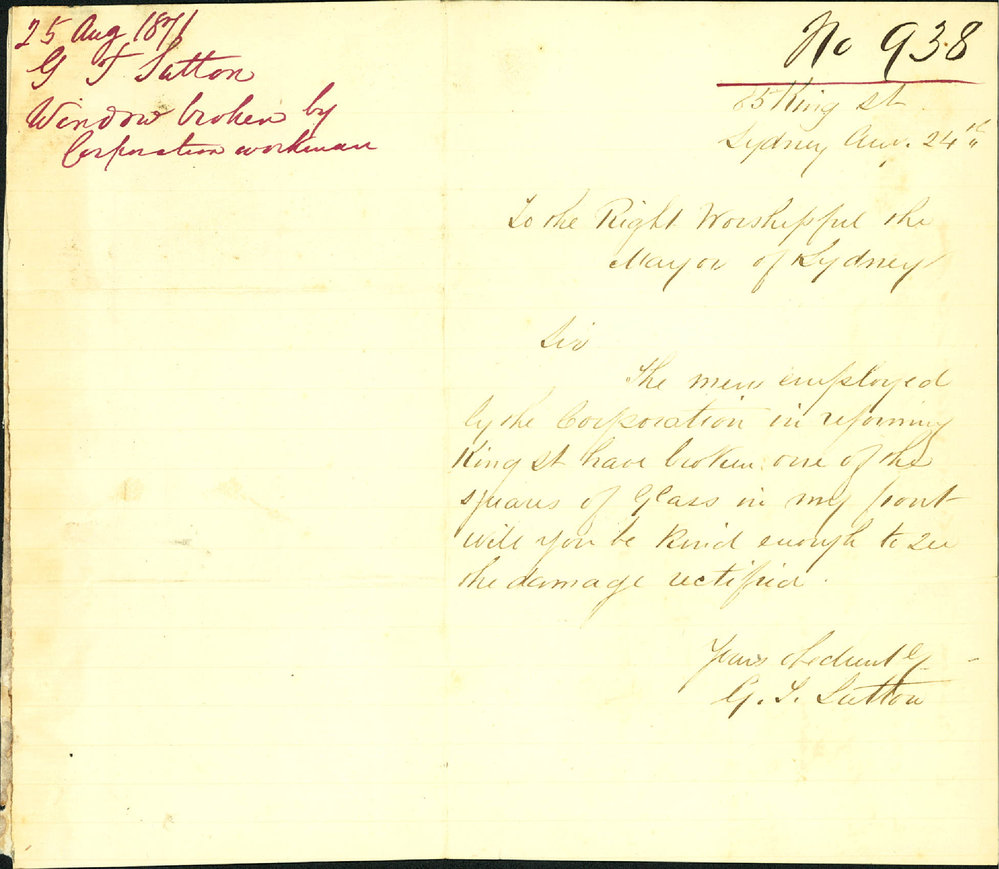 25 Aug 1871
G F Sutton
Window broken by
Corporation workman
No 938
85 King St
Sydney Au. 24th
To the Right Worshipful the
Mayor of Sydney
Sir
The men employed
by the Corporation in reforming
King St have broken one of the
squares of Glass in my front
will you be kind enough to see
the damage rectified.
Yours obediently
G. F. Sutton